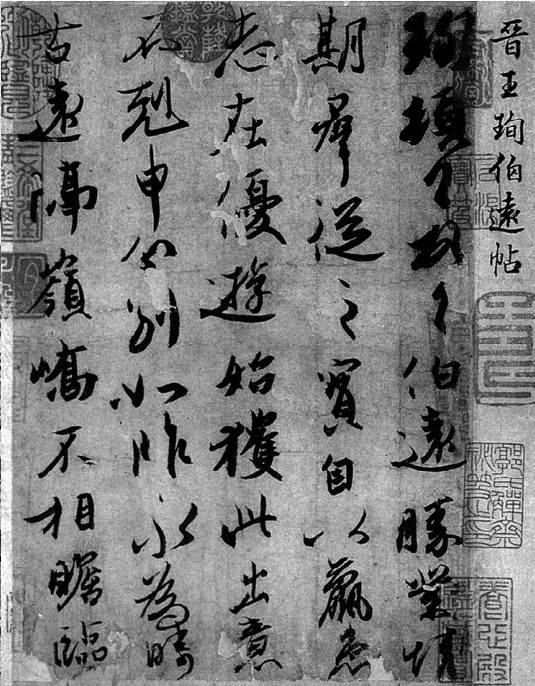 晉王珣伯遠帖
珣頓々首々伯遠勝業情
期羣從之寶自以羸患
志在優遊始獲此出意
不剋申分別如昨永為疇
古遠隔嶺嶠不相瞻臨